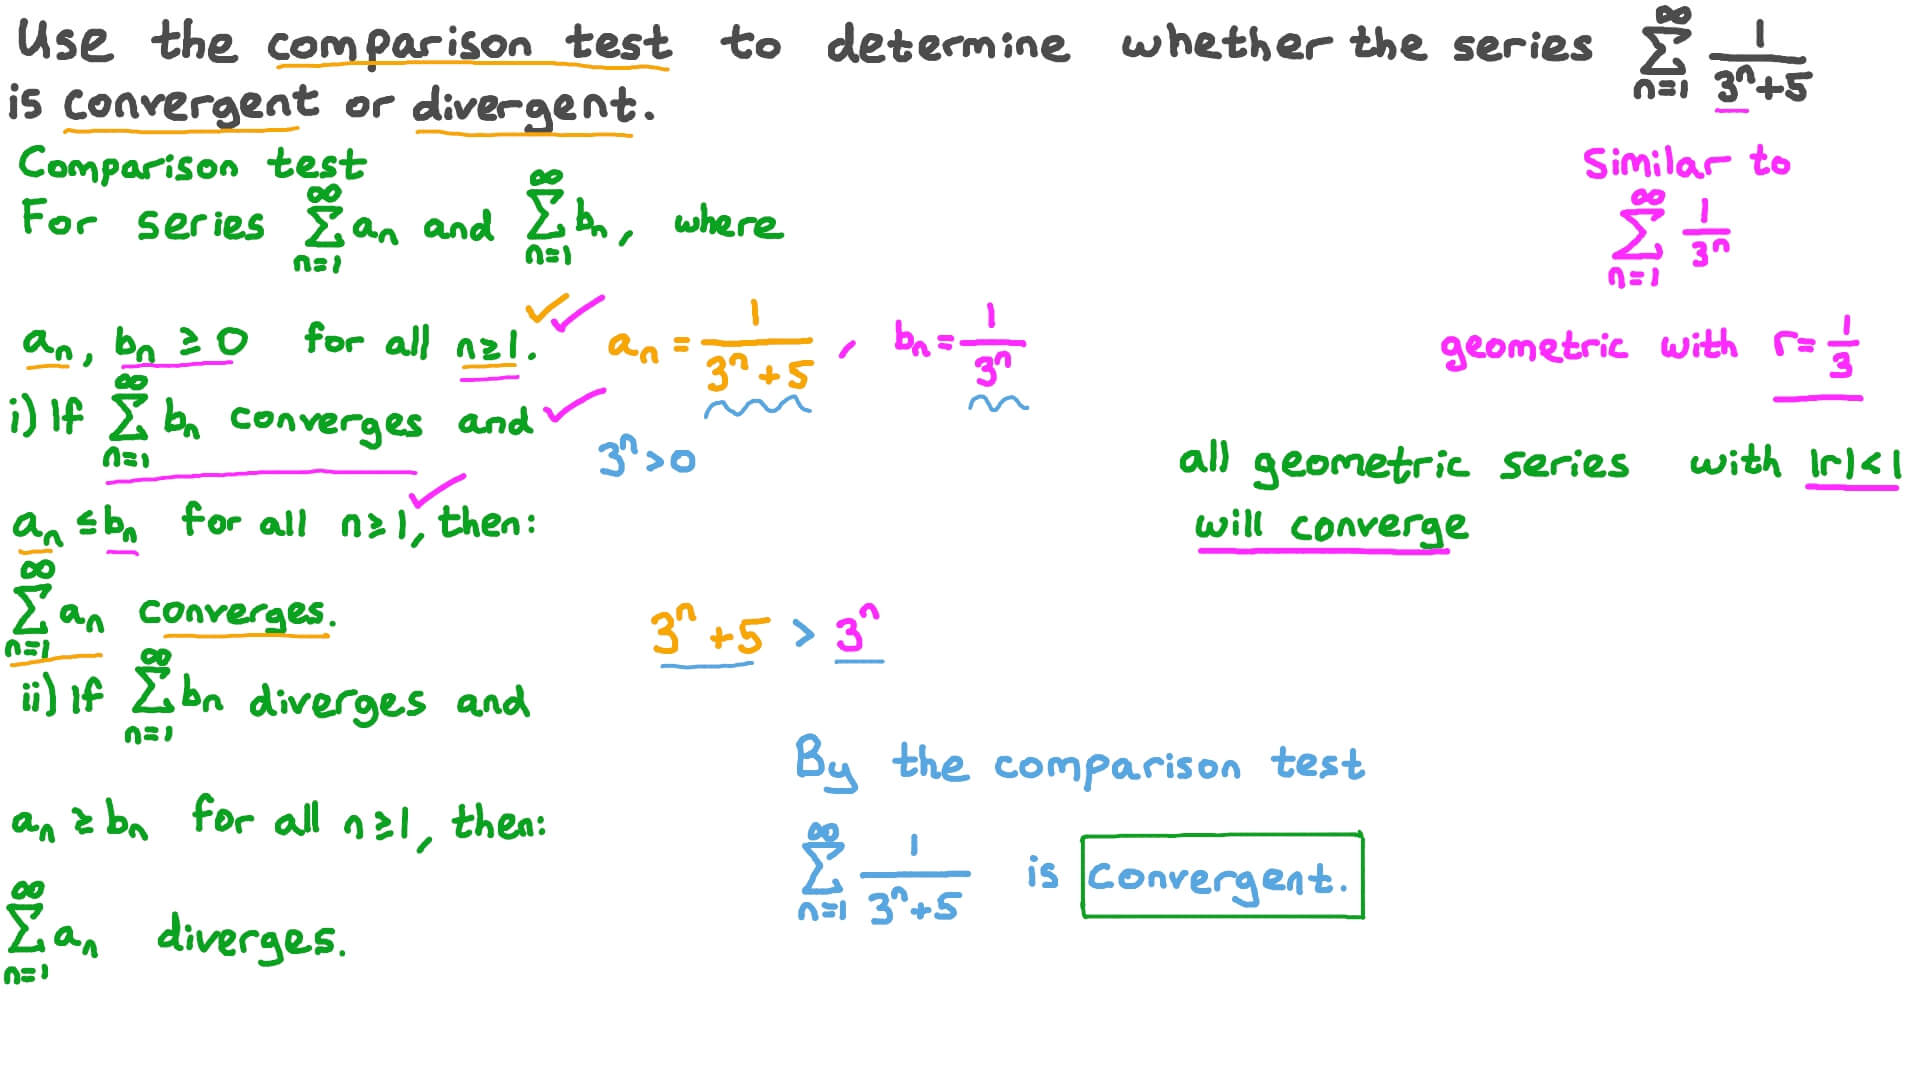 Use the comparison test to determine whether the series ∞ Σ n=1 1/(3ⁿ+5)
is convergent or divergent.
Comparison test
For series ∞ Σ n=1 aₙ and ∞ Σ n=1 bₙ, where
aₙ, bₙ ≥ 0 for all n≥1. ✓✓
i) If ∞ Σ n=1 bₙ converges and ✓
aₙ ≤ bₙ for all n≥1, then: ✓
∞ Σ n=1 aₙ converges.
ii) If ∞ Σ n=1 bₙ diverges and
aₙ ≥ bₙ for all n≥1, then:
∞ Σ n=1 aₙ diverges.
aₙ = 1/(3ⁿ+5), bₙ = 1/3ⁿ
3ⁿ > 0
3ⁿ+5 > 3ⁿ
Similar to
∞ Σ n=1 1/3ⁿ
geometric with r = 1/3
all geometric series with |r|<1
will converge
By the comparison test
∞ Σ n=1 1/(3ⁿ+5) is convergent.